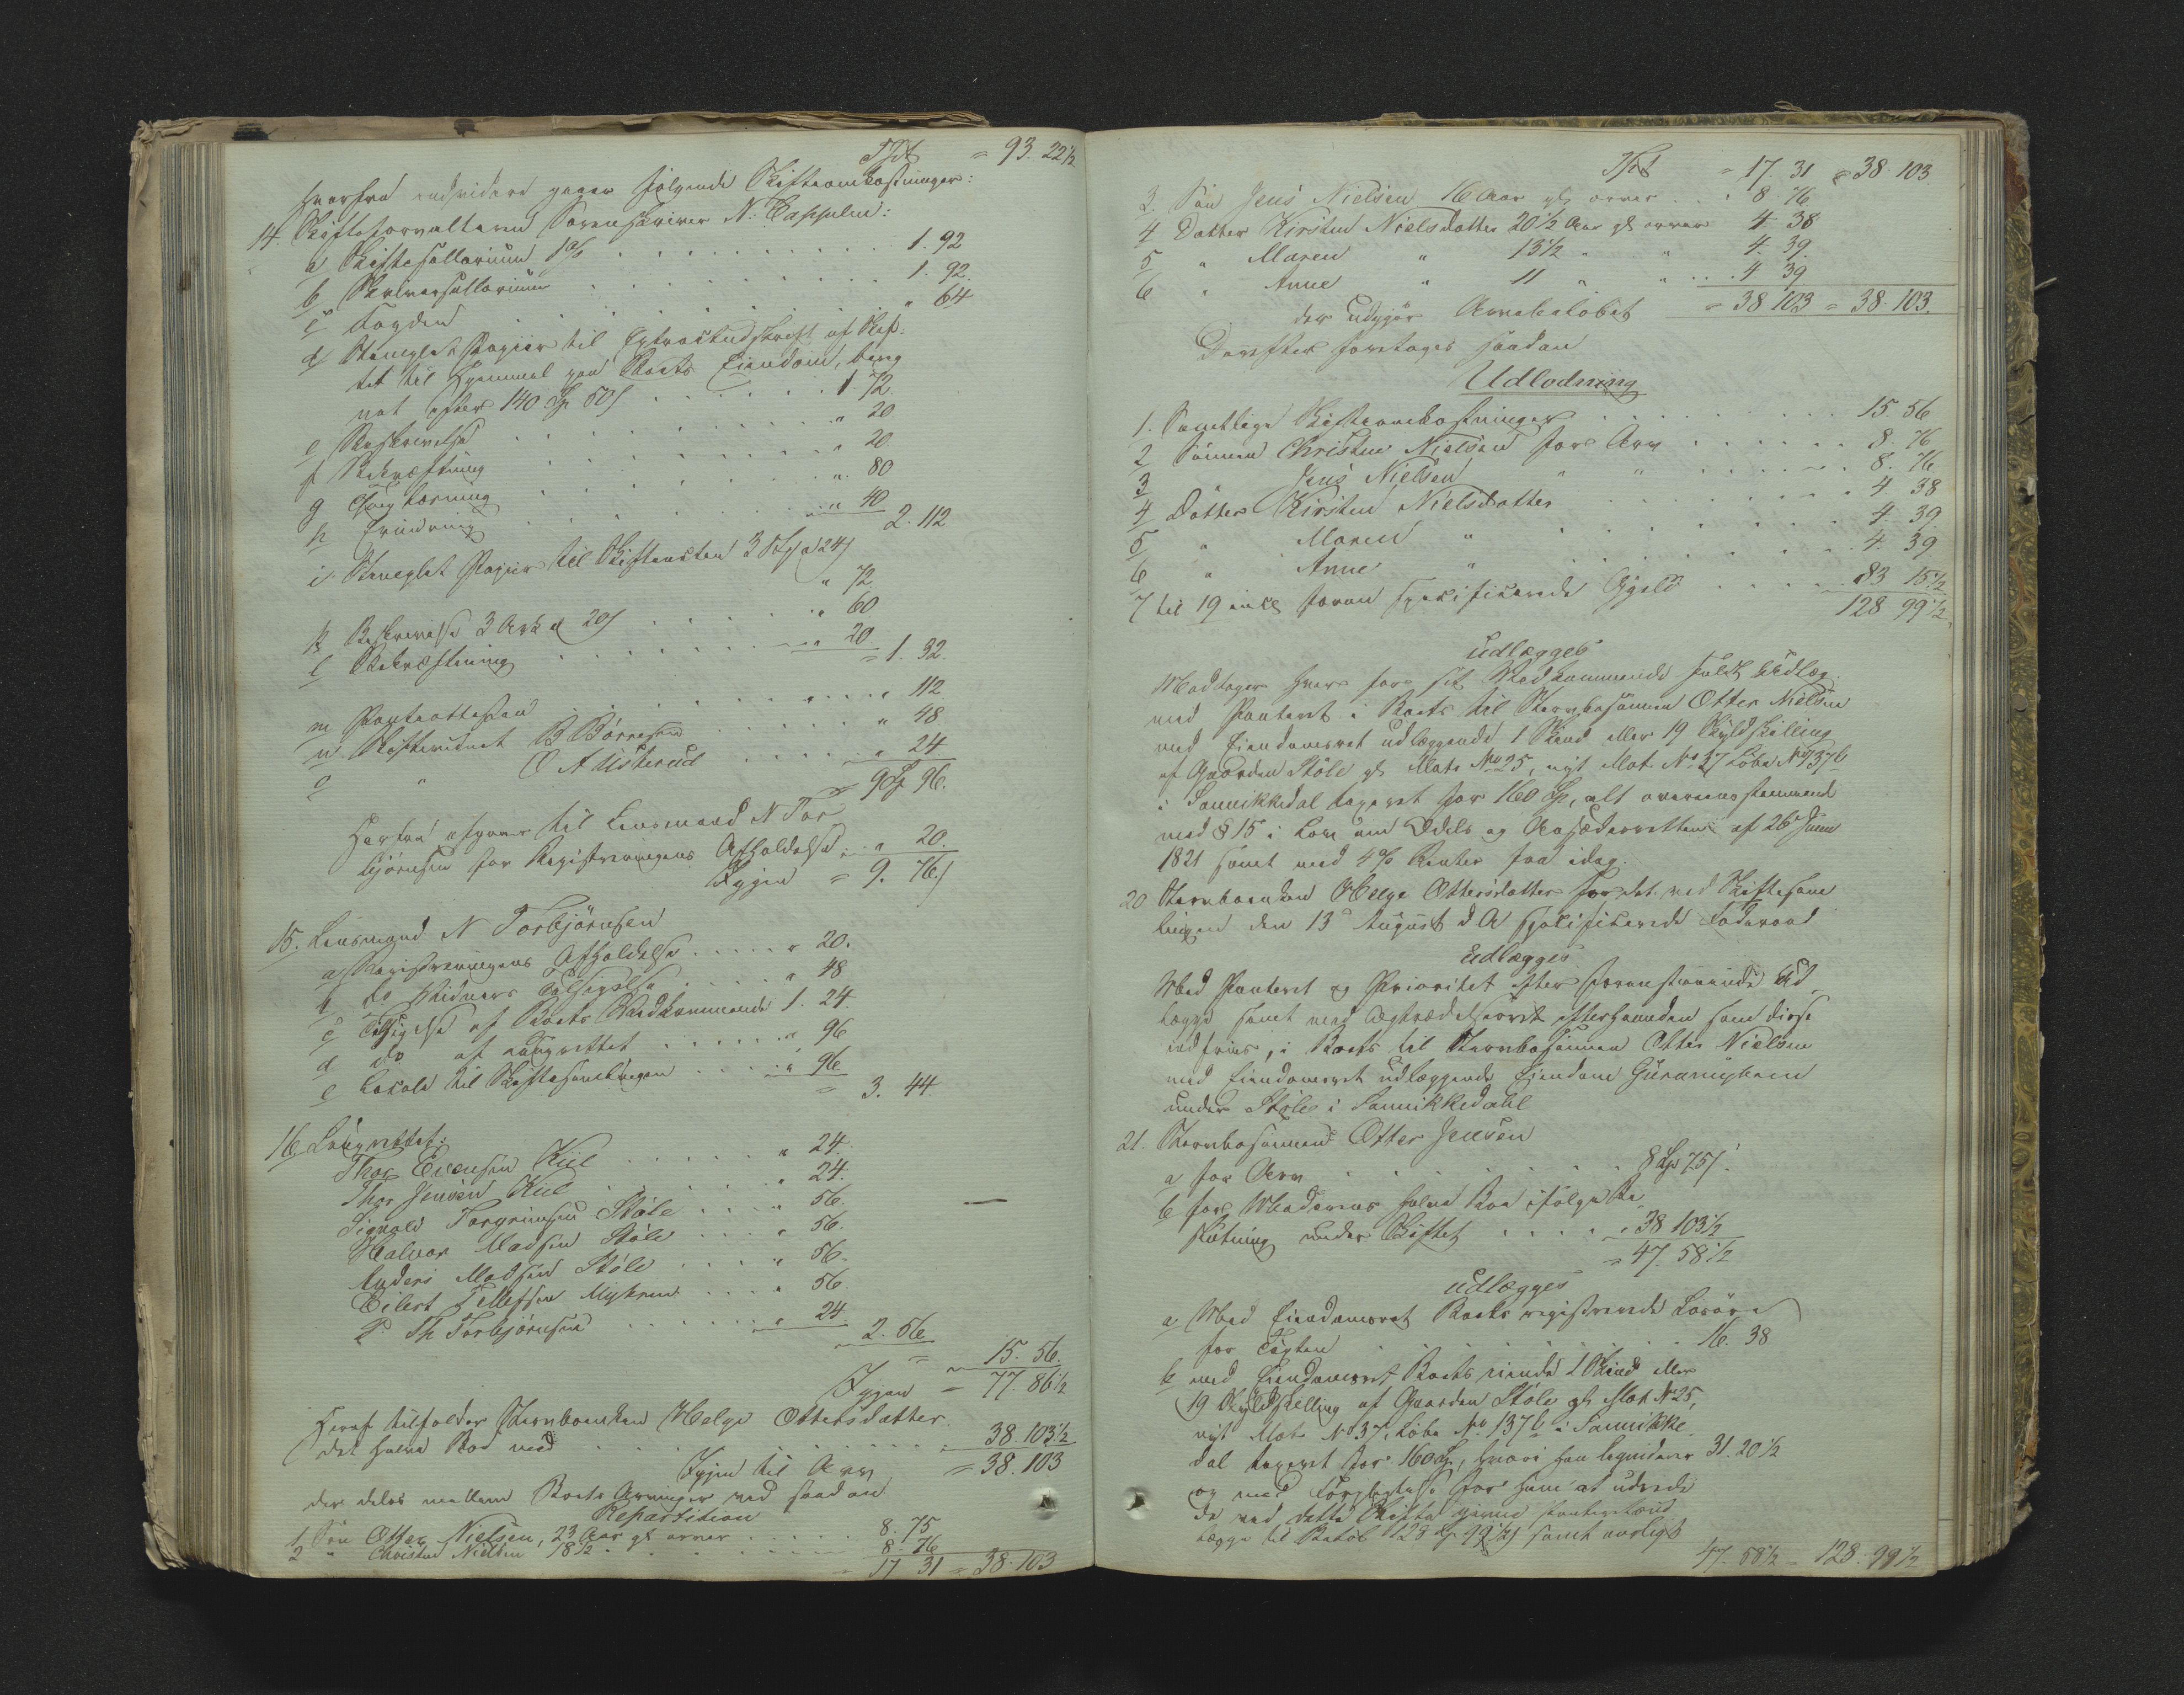 Tpt = 93. 22½
hvorfra endvidere gaaer følgende Skifteomkostninger:
14. Skifteforvalteren Sorenskriver N. Cappelen:
a Skiftesallarium 1% . . . 1. 92
b Skriversallarium . . . 1. 92.
c Fogden . . . " 64
d Stemplet Papier til Extractudskrift af Skif-
tet til Hjemmel paa Boets Eiendom, bereg
net efter 140 Sp 50 s . . . 1 72.
e Beskrivelse . . . " 20
f Bekræftning . . . " 20
g Thinglæsning . . . " 80
h Erindring . . . " 40
2. 112
i. Stemplet Papiir til Skifteacten 3 Ark a 24 s
" 72
k Beskrivelse 3 Ark a 20 s . . . " 60
l Bekræftning . . . " 20
= 1. 32.
m Panteattesten . . . " 112
n. Skiftevidnet B Børresen . . . " 48
o " O A Usterud . . . " 24
= 9 Sp 96.
Herfra afgaaer til Lensmand N Tor
bjørnsen for Registreringens Afholdelse . . " 20.
Igjen = 9. 76.
15. Lensmand N Torbjørnsen
a Registreringens Afholdelse . . . " 20.
b do Vidners Tilsigelse . . . " 48
c Tilsigelse af Boets Vedkommende 1. 24
d do af Laugrettet . . . " 96
e Locale til Skiftesamlingen . . . " 96
= 3. 44.
16 Laugrettet:
Thor Evensen Kiil . . . " 24.
Thor Jensen Kiil . . . " 24.
Sigvald Torgrimsen Støle . . . " 56.
Halvor Madsen Støle . . . " 56.
Anders Madsen Støle . . . " 56.
Eilert Tellefsen Myhren . . . " 56
P. Th Torbjørnsen . . . " 24
2. 56
= 15. 56.
Igjen = 77. 86½
Heraf tilfalder Sterboenken Helge Ottersdatter
det halve Bo med . . . 38. 103½
Igjen til Arv = 38. 103
der deles mellem Boets Arvinger ved saadan
Repartition
1 Søn Otter Nielsen, 23 Aar gl arver . . . 8. 75
2 " Christen Nielsen 18½ . . . 8. 76
= 17 31 = 38. 103
Tpt = 17. 31 = 38. 103
3. Søn Jens Nielsen 16 Aar gl arver . . . 8. 76
4 Datter Kirsten Nielsdatter 20½ Aar gl arver 4 38
5 " Maren " 13½ " " 4. 39.
6 " Anne " 11 " " . . . 4 39
der udgjør Arvebeløbet = 38 103 = 38. 103.
Derefter foretages saadan
Udlodning
1. Samtlige Skifteomkostninger . . . 15. 56
2 Sønnen Christen Nielsen for Arv . . . 8. 76
3 " Jens Nielsen " " . . . 8. 76
4 Datter Kirsten Nielsdatter . . . 4 38
5 " Maren " . . . 4. 39.
6 " Anne " . . . 4. 39
7 til 19 incl foran specificerede Gjæld . . . 83 15½
128 99½
udlægges
Modtager hver for sit Vedkommende fuldt Udlæg
med Panteret i Boets til Sterbosønnen Otter Nielsen
med Eiendomsret udlæggende 1 Skind eller 19 Skyldskilling
af Gaarden Støle gl Matr No 25, nyt Mat. No 37 Løbe No 137b
i Sannikedal taxeret for 160 Sp, alt overeensstemmende
med § 15 i Lov om Odels og Aasædesretten af 26 Juni
1821 samt med 4% Renter fra idag.
20 Sterboenken Helge Ottersdatter for det ved Skiftesam
lingen den 13 August d A specificerede Foderaad
Udlægges
Med Panteret og Prioritet efter foranstaaende Ud
læg samt med Optrædelsesret efterhaanden som disse
indfries, i Boets til Sterbosønnen Otter Nielsen
med Eiendomsret udlæggende Eiendom
under Støle i Sannikedahl
21. Sterbosønnen Otter Jensen
a for Arv . . . 8 Sp 75 s.
b for Moderens halve Boe ifølge Be
slutning under Skiftet . . . " 38 103½
= 47. 58½
udlægges
a Med Eiendomsret Boets registrerede Løsøre
for Taxten . . . 16. 38
b med Eiendomsret Boets eiende 1 Skind eller
19 Skyldskilling af Gaarden Støle gl Mat No 25,
nyt Mat No 37, Løbe No 137b i Sannikke
dal taxeret for 160 Sp, hvori han liqviderer 31. 20½
og med Forpligtelse for ham at udrede
de ved dette Skifte givne panteudlæg
lægge til Beløb 128 Sp 99½ s samt aarligt
47. 58½ = 128. 99½